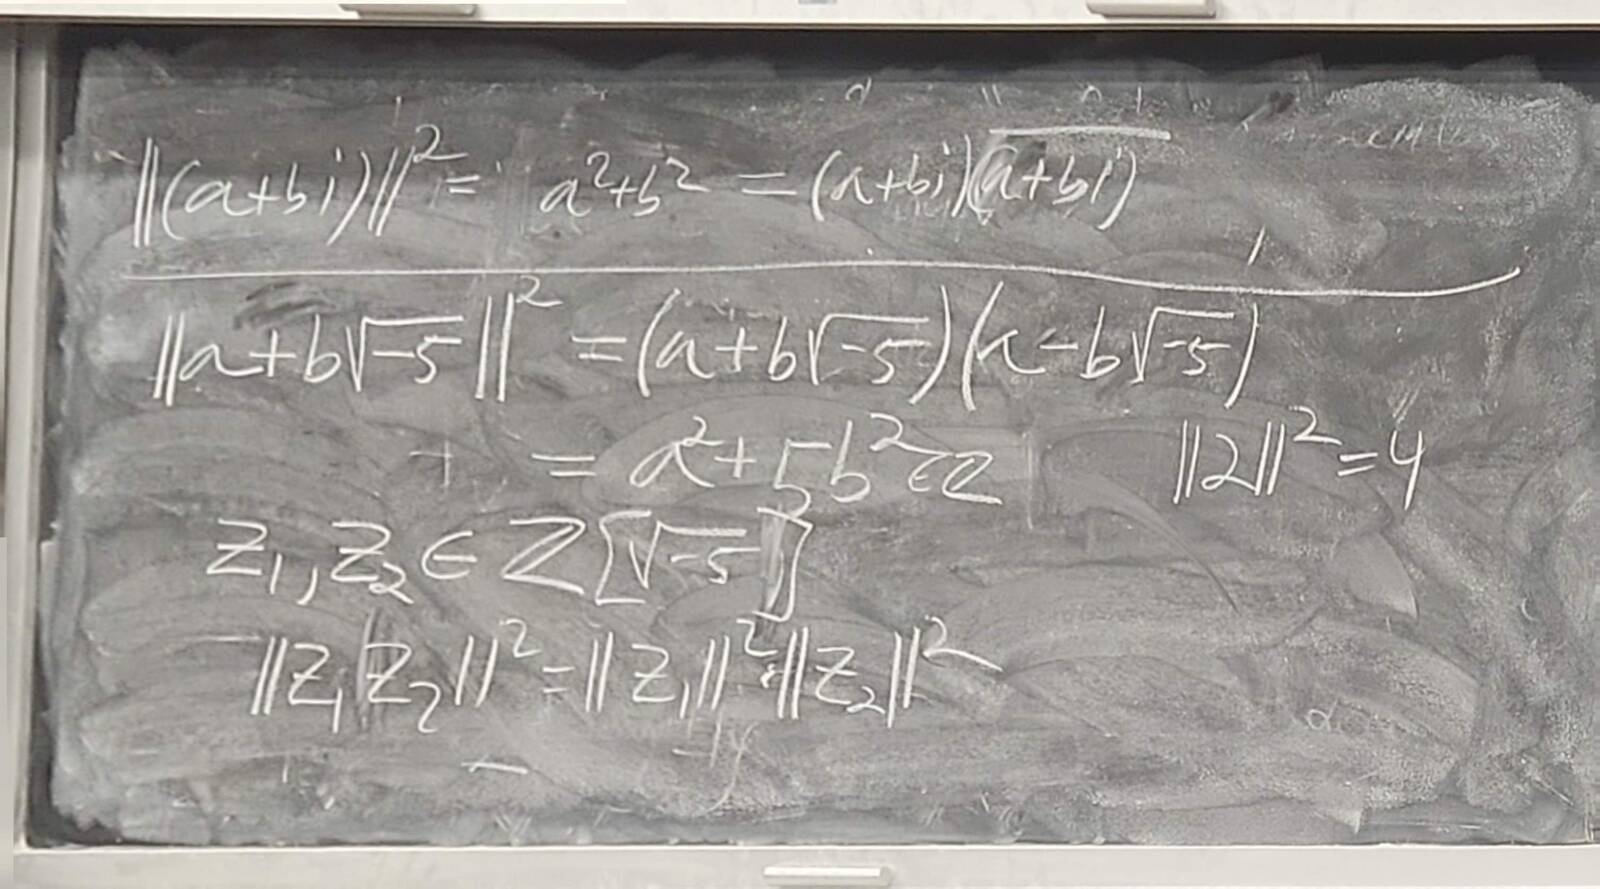 ‖(a+bi)‖² = a²+b² = (a+bi)(a+bi)‾
‖a+b√-5‖² = (a+b√-5)(a-b√-5)
= a²+5b² ∈ Z ‖2‖² = 4
z₁, z₂ ∈ Z[√-5]
‖z₁z₂‖² = ‖z₁‖²·‖z₂‖²